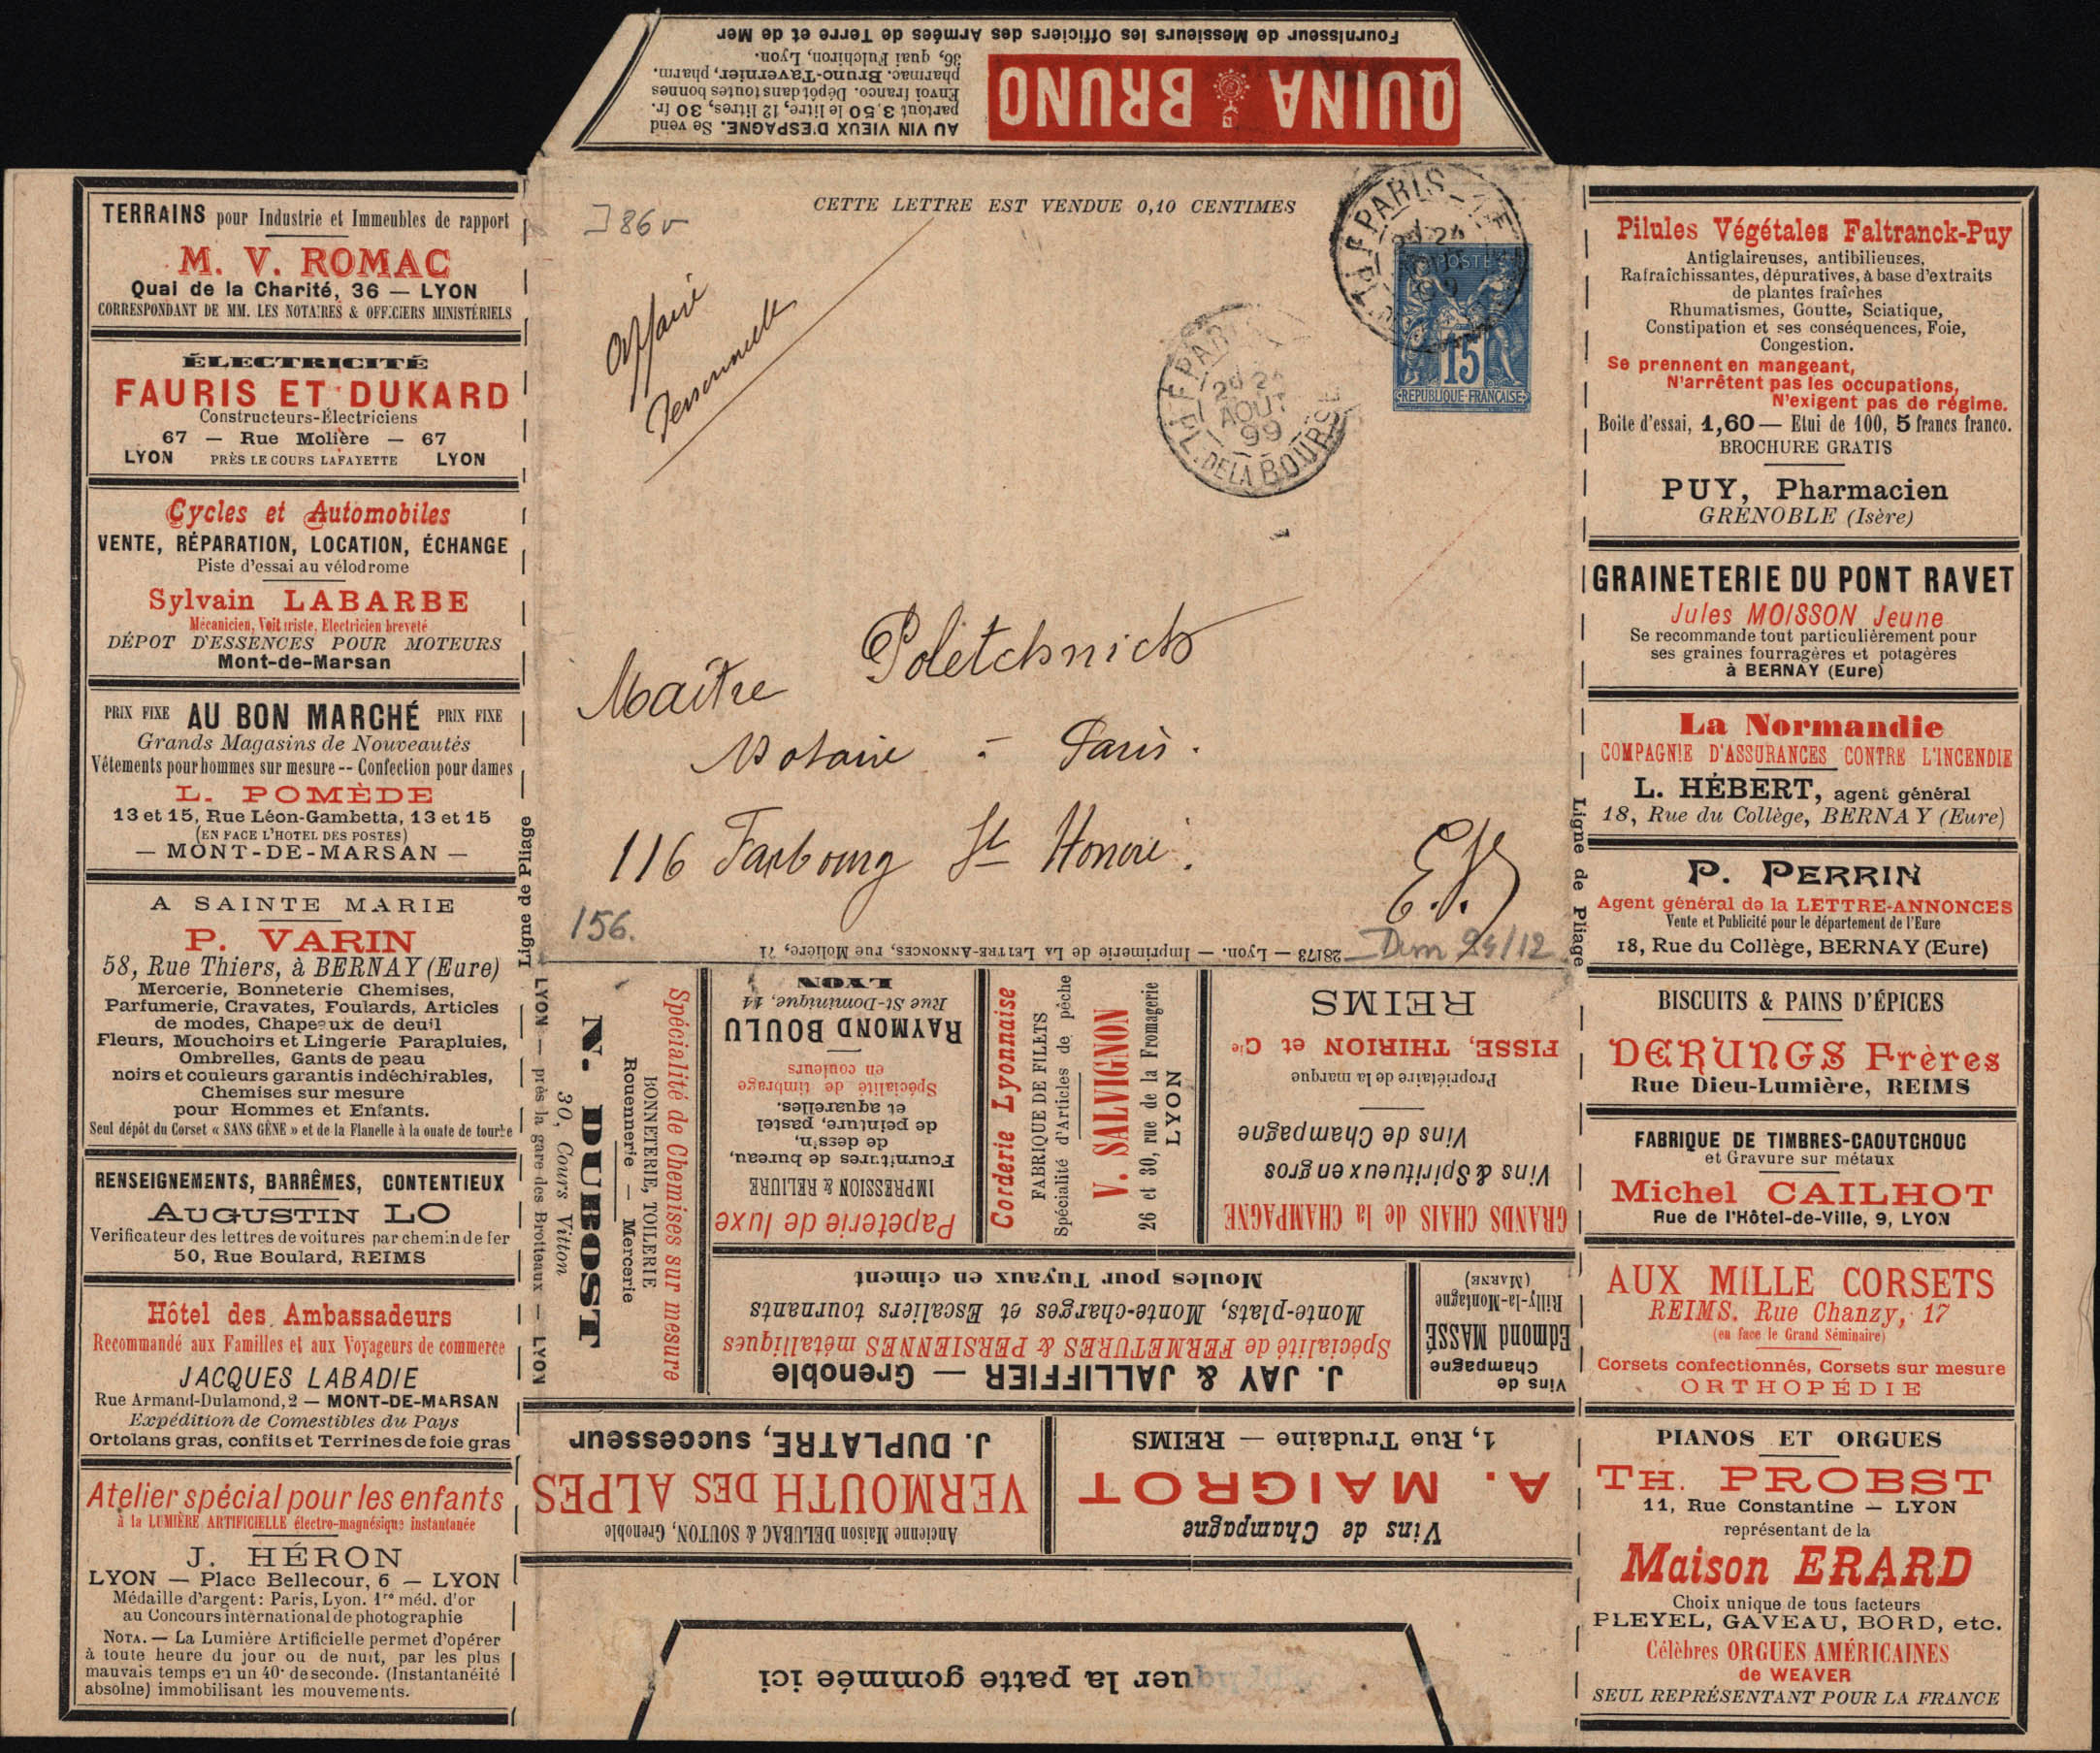 Fournisseur de Messieurs les Officiers des Armées de Terre et de Mer
QUINA BRUNO
AU VIN VIEUX D'ESPAGNE. Se vend
partout 3,50 le litre, 12 litres, 30 fr.
Envoi franco. Dépôt dans toutes bonnes
pharmac. Bruno-Tavernier, pharm.
36, quai Fulchiron, Lyon.
TERRAINS pour Industrie et Immeubles de rapport
M. V. ROMAC
Quai de la Charité, 36 — LYON
CORRESPONDANT DE MM. LES NOTAIRES & OFFICIERS MINISTÉRIELS
ÉLECTRICITÉ
FAURIS ET DUKARD
Constructeurs-Électriciens
67 — Rue Molière — 67
LYON PRÈS LE COURS LAFAYETTE LYON
Cycles et Automobiles
VENTE, RÉPARATION, LOCATION, ÉCHANGE
Piste d'essai au vélodrome
Sylvain LABARBE
Mécanicien, Voituriste, Electricien breveté
DÉPOT D'ESSENCES POUR MOTEURS
Mont-de-Marsan
PRIX FIXE AU BON MARCHÉ PRIX FIXE
Grands Magasins de Nouveautés
Vêtements pour hommes sur mesure -- Confection pour dames
L. POMÈDE
13 et 15, Rue Léon-Gambetta, 13 et 15
(EN FACE L'HOTEL DES POSTES)
— MONT-DE-MARSAN —
A SAINTE MARIE
P. VARIN
58, Rue Thiers, à BERNAY (Eure)
Mercerie, Bonneterie Chemises,
Parfumerie, Cravates, Foulards, Articles
de modes, Chapeaux de deuil
Fleurs, Mouchoirs et Lingerie Parapluies,
Ombrelles, Gants de peau
noirs et couleurs garantis indéchirables,
Chemises sur mesure
pour Hommes et Enfants.
Seul dépôt du Corset « SANS GÊNE » et de la Flanelle à la ouate de tourbe
RENSEIGNEMENTS, BARRÊMES, CONTENTIEUX
AUGUSTIN LO
Verificateur des lettres de voitures par chemin de fer
50, Rue Boulard, REIMS
Hôtel des Ambassadeurs
Recommandé aux Familles et aux Voyageurs de commerce
JACQUES LABADIE
Rue Armand-Dulamond, 2 — MONT-DE-MARSAN
Expédition de Comestibles du Pays
Ortolans gras, confits et Terrines de foie gras
Atelier spécial pour les enfants
à la LUMIÈRE ARTIFICIELLE électro-magnésique instantanée
J. HÉRON
LYON — Place Bellecour, 6 — LYON
Médaille d'argent : Paris, Lyon. 1re méd. d'or
au Concours international de photographie
NOTA. — La Lumière Artificielle permet d'opérer
à toute heure du jour ou de nuit, par les plus
mauvais temps en un 40e de seconde. (Instantanéité
absolue) immobilisant les mouvements.
Ligne de Pliage
CETTE LETTRE EST VENDUE 0,10 CENTIMES
J 86 v
Affaire
Personnelle
PARIS
PL. DE LA BOURSE
24
AOUT
99
POSTES
15
REPUBLIQUE FRANÇAISE
Maître Poletchnich
Notaire - Paris.
116 Faubourg St Honoré.
E.V.
156.
28173 — Lyon. — Imprimerie de LA LETTRE-ANNONCES, rue Molière, 71
Ligne de Pliage
Spécialité de Chemises sur mesure
BONNETERIE, TOILERIE
Rouennerie — Mercerie
N. DUBOST
30, Cours Vitton
LYON — près la gare des Brotteaux — LYON
Papeterie de luxe
IMPRESSION & RELIURE
Fournitures de bureau,
de dessin,
de peinture, pastel
et aquarelles.
Spécialité de timbrage
en couleurs
RAYMOND BOULU
Rue St-Dominique, 11
LYON
Corderie Lyonnaise
FABRIQUE DE FILETS
Spécialité d'Articles de pêche
V. SALVIGNON
26 et 30, rue de la Fromagerie
LYON
GRANDS CHAIS de la CHAMPAGNE
Vins & Spiritueux en gros
Vins de Champagne
Propriétaire de la marque
FISSE, THIRION et Cie
REIMS
Vins de
Champagne
Edmond MASSÉ
Rilly-la-Montagne
(MARNE)
J. JAY & JALLIFFIER — Grenoble
Spécialité de FERMETURES & PERSIENNES métalliques
Monte-plats, Monte-charges et Escaliers tournants
Moules pour Tuyaux en ciment
Vins de Champagne
A. MAIGROT
1, Rue Trudaine — REIMS
Ancienne Maison DELUBAC & SOUTON, Grenoble
VERMOUTH DES ALPES
J. DUPLATRE, successeur
quer la patte gommée ici
Pilules Végétales Faltranck-Puy
Antiglaireuses, antibilieuses,
Rafraîchissantes, dépuratives, à base d'extraits
de plantes fraîches
Rhumatismes, Goutte, Sciatique,
Constipation et ses conséquences, Foie,
Congestion.
Se prennent en mangeant,
N'arrêtent pas les occupations,
N'exigent pas de régime.
Boîte d'essai, 1,60 — Etui de 100, 5 francs franco.
BROCHURE GRATIS
PUY, Pharmacien
GRENOBLE (Isère)
GRAINETERIE DU PONT RAVET
Jules MOISSON Jeune
Se recommande tout particulièrement pour
ses graines fourragères et potagères
à BERNAY (Eure)
La Normandie
COMPAGNIE D'ASSURANCES CONTRE L'INCENDIE
L. HÉBERT, agent général
18, Rue du Collège, BERNAY (Eure)
P. PERRIN
Agent général de la LETTRE-ANNONCES
Vente et Publicité pour le département de l'Eure
18, Rue du Collège, BERNAY (Eure)
BISCUITS & PAINS D'ÉPICES
DERUNGS Frères
Rue Dieu-Lumière, REIMS
FABRIQUE DE TIMBRES-CAOUTCHOUC
et Gravure sur métaux
Michel CAILHOT
Rue de l'Hôtel-de-Ville, 9, LYON
AUX MILLE CORSETS
REIMS. Rue Chanzy, 17
(en face le Grand Séminaire)
Corsets confectionnés, Corsets sur mesure
ORTHOPÉDIE
PIANOS ET ORGUES
TH. PROBST
11, Rue Constantine — LYON
représentant de la
Maison ERARD
Choix unique de tous facteurs
PLEYEL, GAVEAU, BORD, etc.
Célèbres ORGUES AMÉRICAINES
de WEAVER
SEUL REPRÉSENTANT POUR LA FRANCE